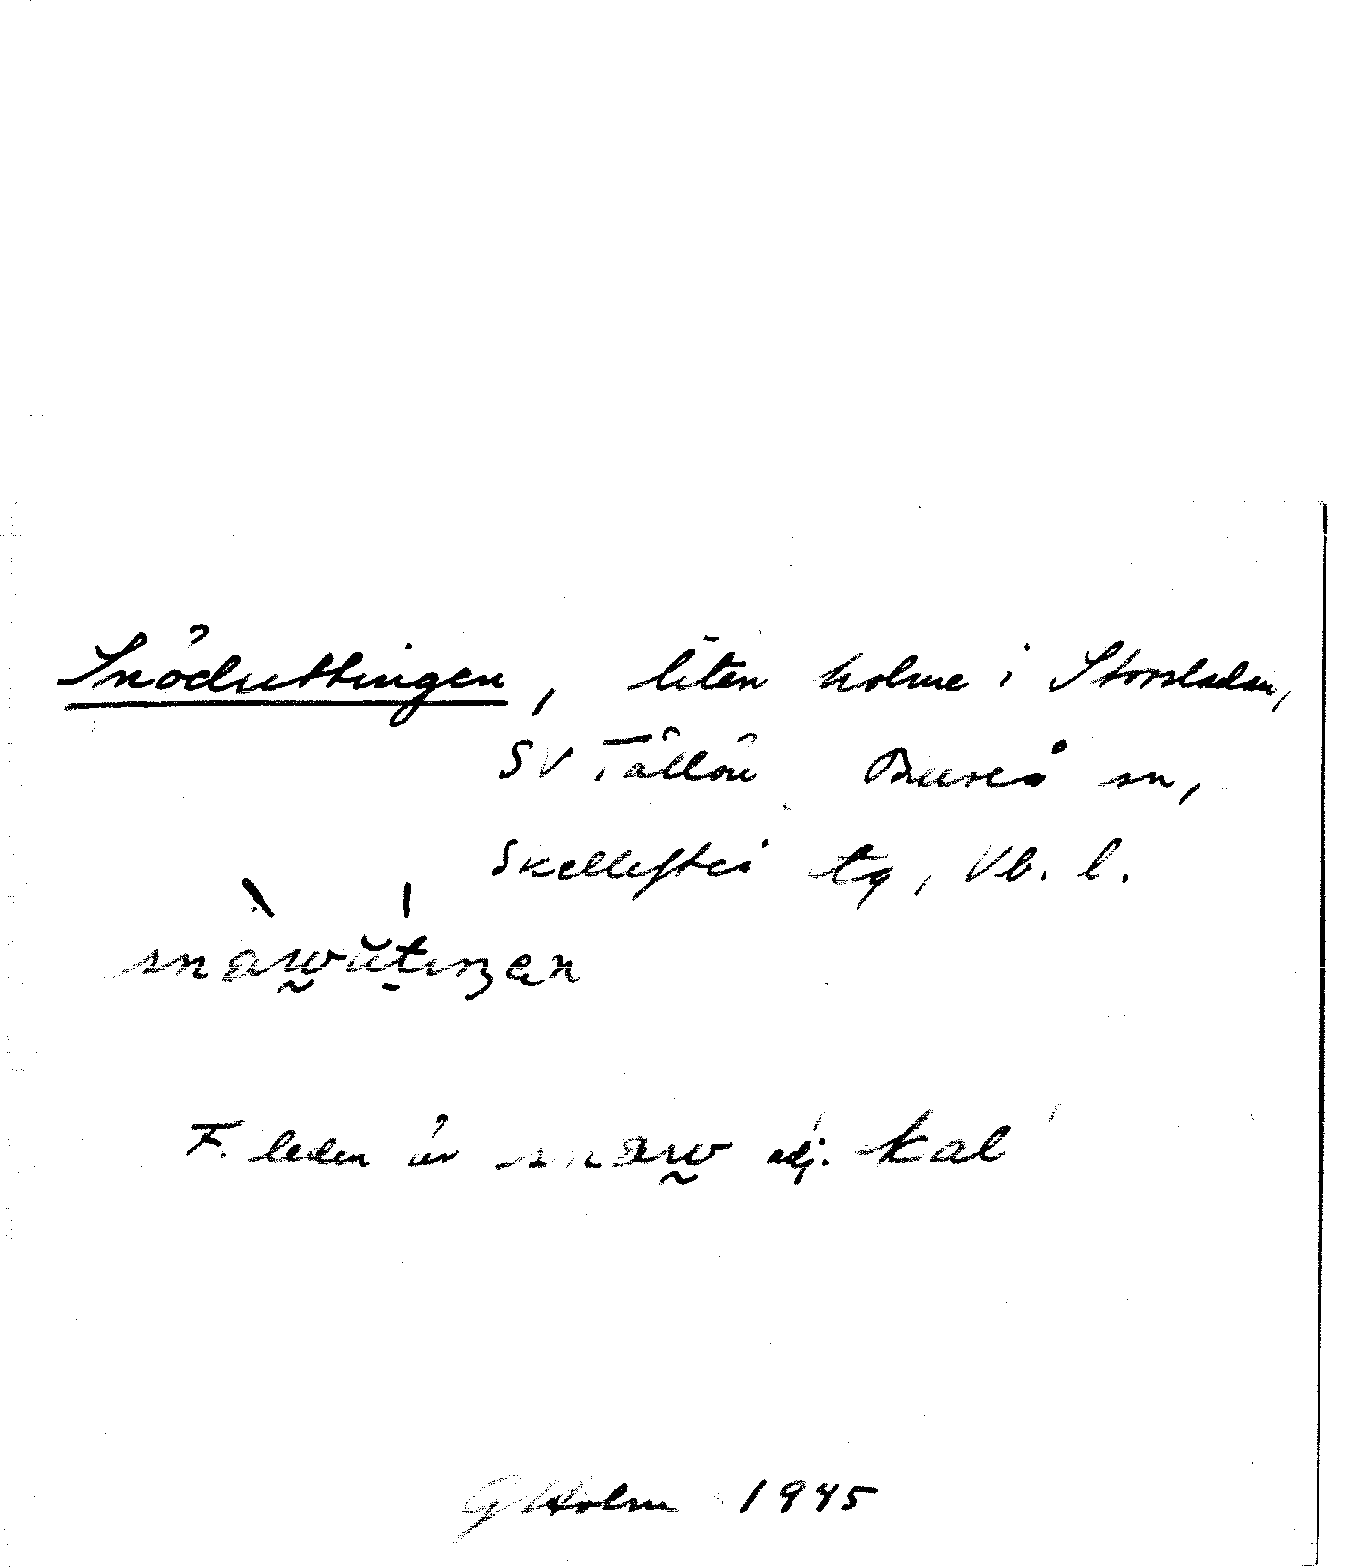 Snöduttingen, liten holme i Storsladan,
SV Tällön Bureå sn,
Skellefteå tg, Vb. l.
F. leden är snaw adj. 'kal'
G Holm 1945